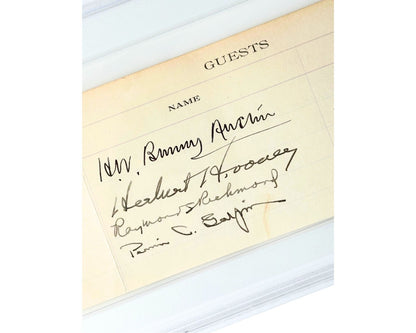 GUESTS
NAME
H.W. Bunny Austin
Herbert Hoover
Raymond S Richmond
C.